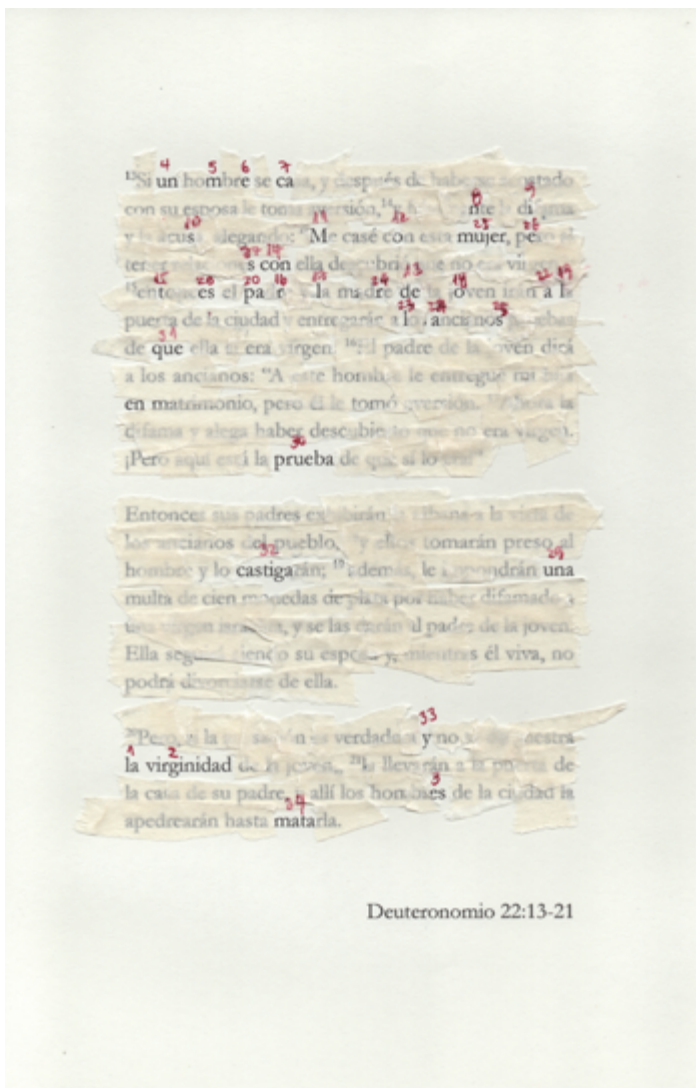 4 5 6 7
¹³Si un hombre se casa, y después de haberse acostado
8 9
con su esposa le toma aversión, ¹⁴y la difama
10 11 12
y la acusa, alegando: "Me casé con esta mujer, pero al
tener relaciones con ella descubrí que no era virgen"
¹⁵entonces el padre y la madre de la joven irán a la
puerta de la ciudad y entregarán a los ancianos pruebas
31
de que ella sí era virgen. ¹⁶El padre de la joven dirá
a los ancianos: "A este hombre le entregué mi hija
en matrimonio, pero él le tomó aversión. Ahora la
difama y alega haber descubierto que no era virgen.
30
¡Pero aquí está la prueba de que sí lo era!"
Entonces sus padres exhibirán la sábana a la vista de
los ancianos del pueblo, y ellos tomarán preso al
32 29
hombre y lo castigarán; ¹⁹además, le impondrán una
multa de cien monedas de plata por haber difamado a
una virgen israelita, y se las darán al padre de la joven.
Ella seguirá siendo su esposa y, mientras él viva, no
podrá divorciarse de ella.
33
²⁰Pero, si la acusación es verdadera y no se demuestra
1 2
la virginidad de la joven, ²¹la llevarán a la puerta de
3
la casa de su padre, y allí los hombres de la ciudad la
34
apedrearán hasta matarla.
Deuteronomio 22:13-21